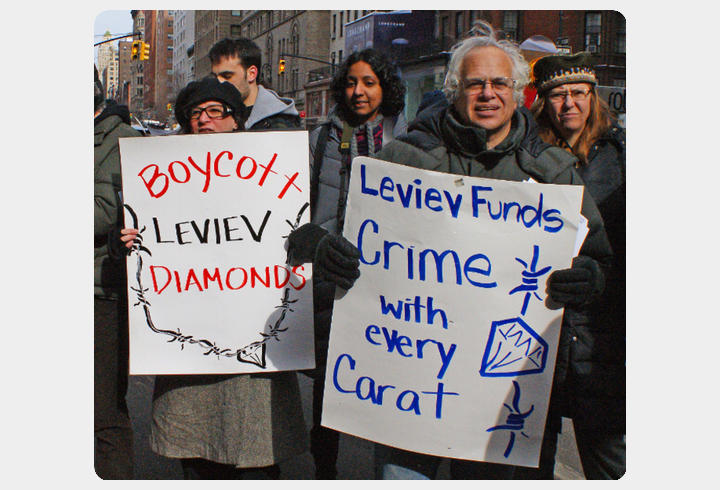 LONGCHAMP
BOYCOTT
LEVIEV
DIAMONDS
Leviev Funds
Crime
with
every
Carat